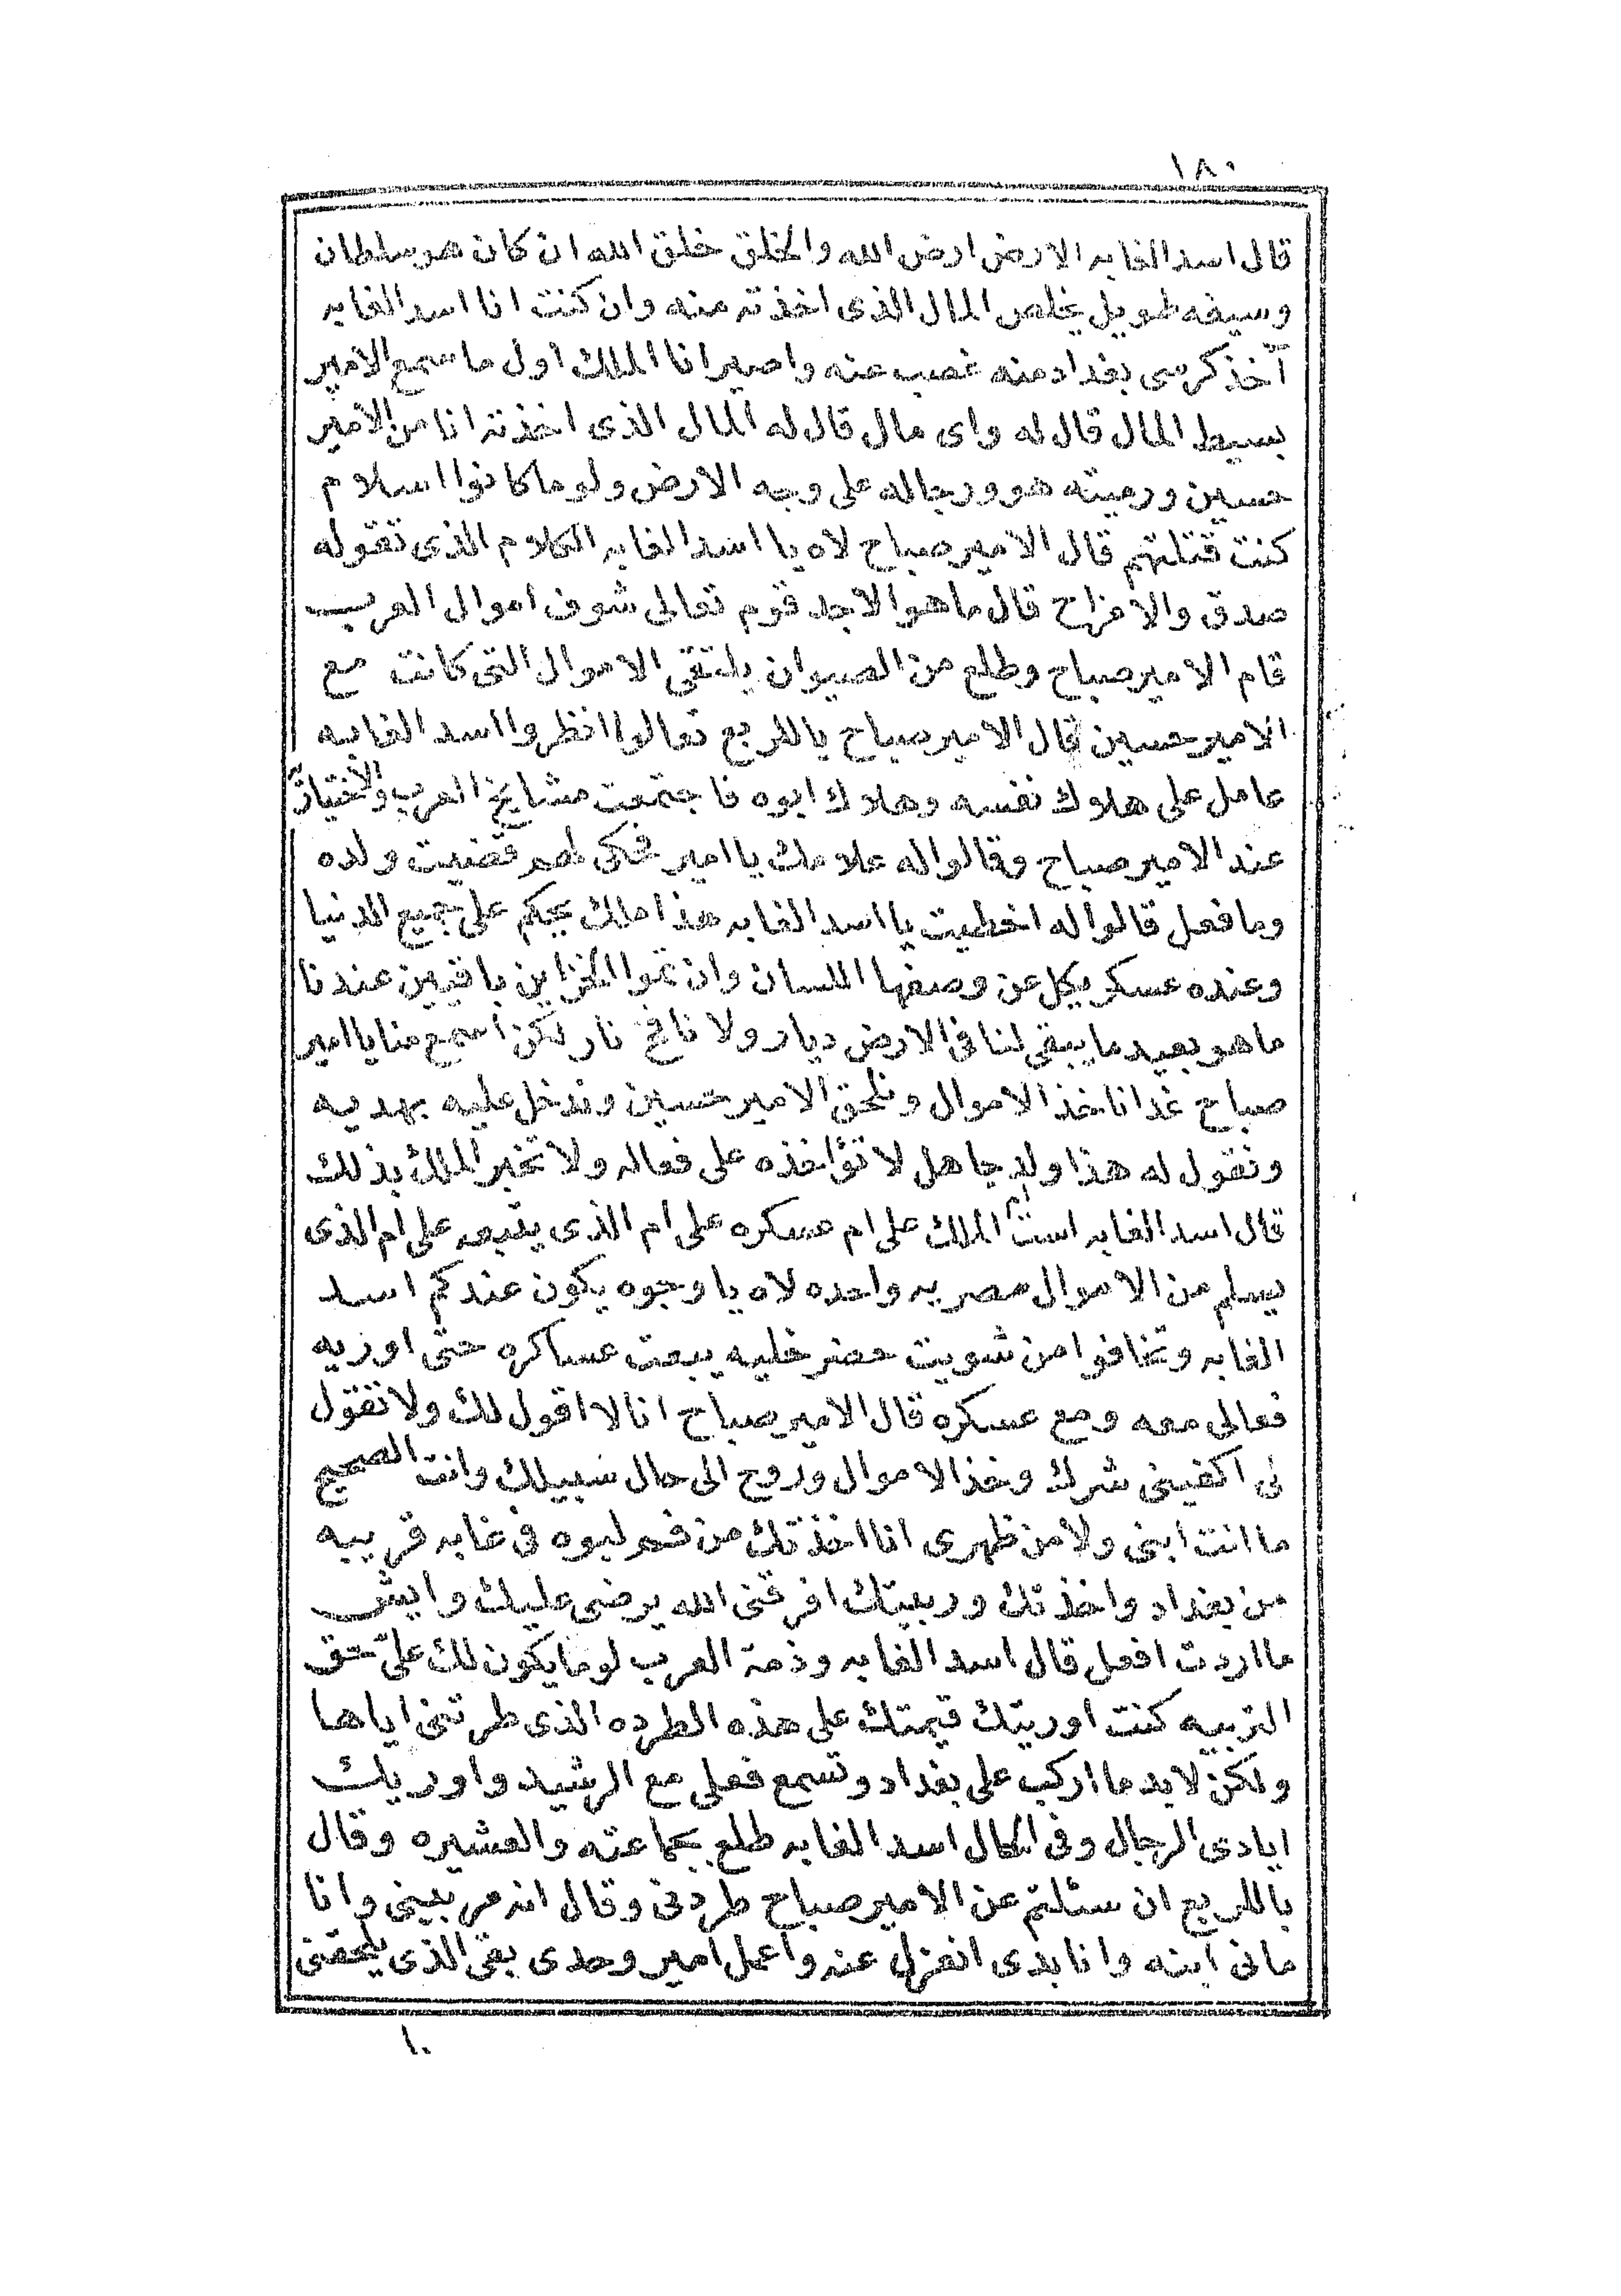 ١٨٠
قال اسد الغابه الارض ارض الله والخلق خلق الله ان كان هو سلطان
وسيفه طويل يخلص المال الذى اخذته منه وان كنت انا اسد الغابه
آخذ كرسى بغداد منه غصب عنه واصير انا الملك اول ما سمع الامير
بسيط المال قال له واى مال قال له المال الذى اخذته انا من الامير
حسين ورميته هو ورجاله على وجه الارض ولو ما كانوا اسلام
كنت قتلتهم قال الامير صباح لاه يا اسد الغابه الكلام الذى تقوله
صدق والا مزاح قال ما هو الا جد قوم تعالى شوف اموال العرب
قام الامير صباح وطلع من الصيوان يلتقى الاموال التى كانت مع
الامير حسين قال الامير صباح ياللربع تعالوا انظروا اسد الغابه
عامل على هلاك نفسه وهلاك ابوه فاجتمعت مشايخ العرب والاختياريّه
عند الامير صباح وقالوا له علامك يا امير فحكى لهم قضيت ولده
وما فعل قالوا له اخطيت يا اسد الغابه هذا ملك يحكم على جميع الدنيا
وعنده عسكر يكل عن وصفها اللسان وان تموا الخزاين باقيين عندنا
ما هو بعيد ما يبقى لنا فى الارض ديار ولا نافخ نار لكن اسمع منا يا امير
صباح غدا ناخذ الاموال ونلحق الامير حسين وندخل عليه بهديه
ونقول له هذا ولد جاهل لا تؤاخذه على فعاله ولا تخبر الملك بذلك
قال اسد الغابه است ام الملك على ام عسكره على ام الذى يتبعه على ام الذى
يسلم من الاموال مصريه واحده لاه يا وجوه يكون عندكم اسد
الغابه وتخافوا من شويت حضر خليه يبعت عساكره حتى اوريه
فعالى معه ومع عسكره قال الامير صباح انا لا اقول لك ولا تقول
لى اكفينى شرك وخذ الاموال وروح الى حال سبيلك وانت الصحيح
ما انت ابنى ولا من ظهرى انا اخذتك من فم لبوه فى غابه قريبه
من بغداد واخذتك وربيتك افرقنى الله يرضى عليك وايش
ما اردت افعل قال اسد الغابه وذمة العرب لو ما يكون لك علىّ حق
التربيه كنت اوريتك قيمتك على هذه الطرده الذى طرتنى اياها
ولكن لابد ما اركب على بغداد وتسمع فعلى مع الرشيد واوريك
ايادى الرجال وفى الحال اسد الغابه طلع بجماعته والعشيره وقال
ياللربع ان سئلتم عن الامير صباح طردنى وقال انه مربينى وانا
مانى ابنه وانا بدى انعزل عنه واعمل امير وحدى بقى الذى يلحقنى
١٠